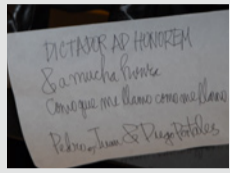 DICTADOR AD HONOREM
& a mucha honra
Como que me llamo como me llamo
Pedro, Juan & Diego Portales